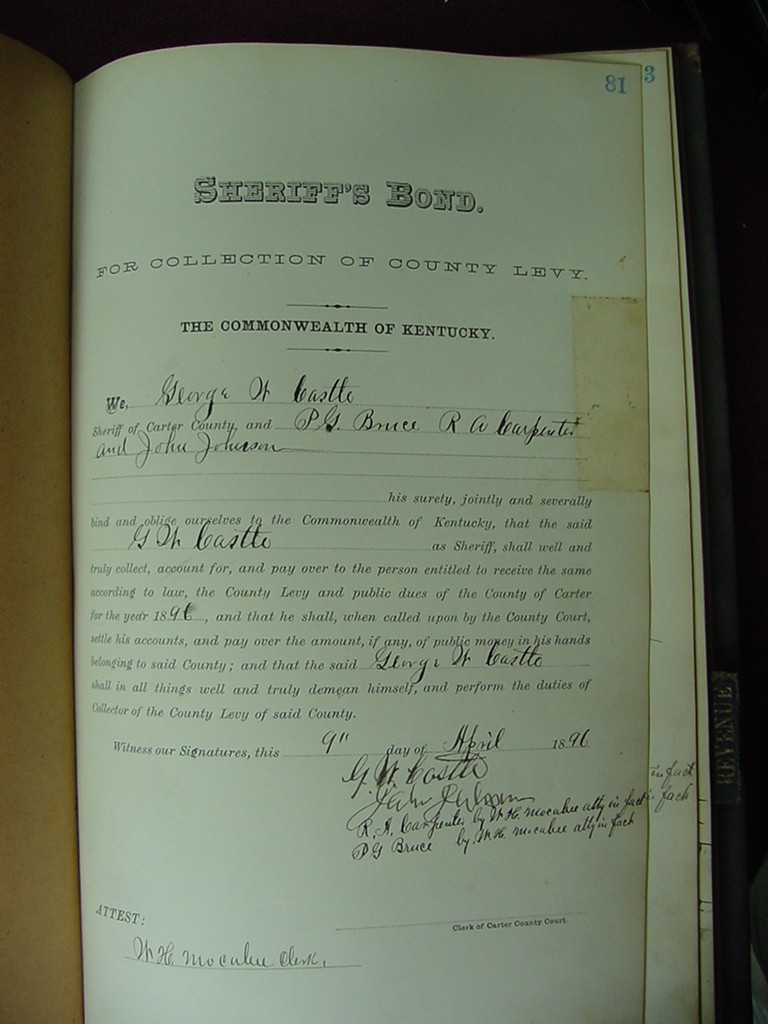 81
3
SHERIFF'S BOND.
FOR COLLECTION OF COUNTY LEVY.
THE COMMONWEALTH OF KENTUCKY.
We, George W Castle
Sheriff of Carter County, and P.G. Bruce R A Carpenter
and John Johnson
his surety, jointly and severally
bind and oblige ourselves to the Commonwealth of Kentucky, that the said
G W Castle as Sheriff, shall well and
truly collect, account for, and pay over to the person entitled to receive the same
according to law, the County Levy and public dues of the County of Carter
for the year 1896, and that he shall, when called upon by the County Court,
settle his accounts, and pay over the amount, if any, of public money in his hands
belonging to said County; and that the said George W Castle
shall in all things well and truly demean himself, and perform the duties of
Collector of the County Levy of said County.
Witness our Signatures, this 9" day of April 1896
G. W. Castle
John Johnson
R. A. Carpenter by W. H. Mocabee atty in fact
P G Bruce by W. H. Mocabee atty in fact
in fact
in fact
ATTEST:
Clerk of Carter County Court.
W H Mocabee Clerk.
REVENUE